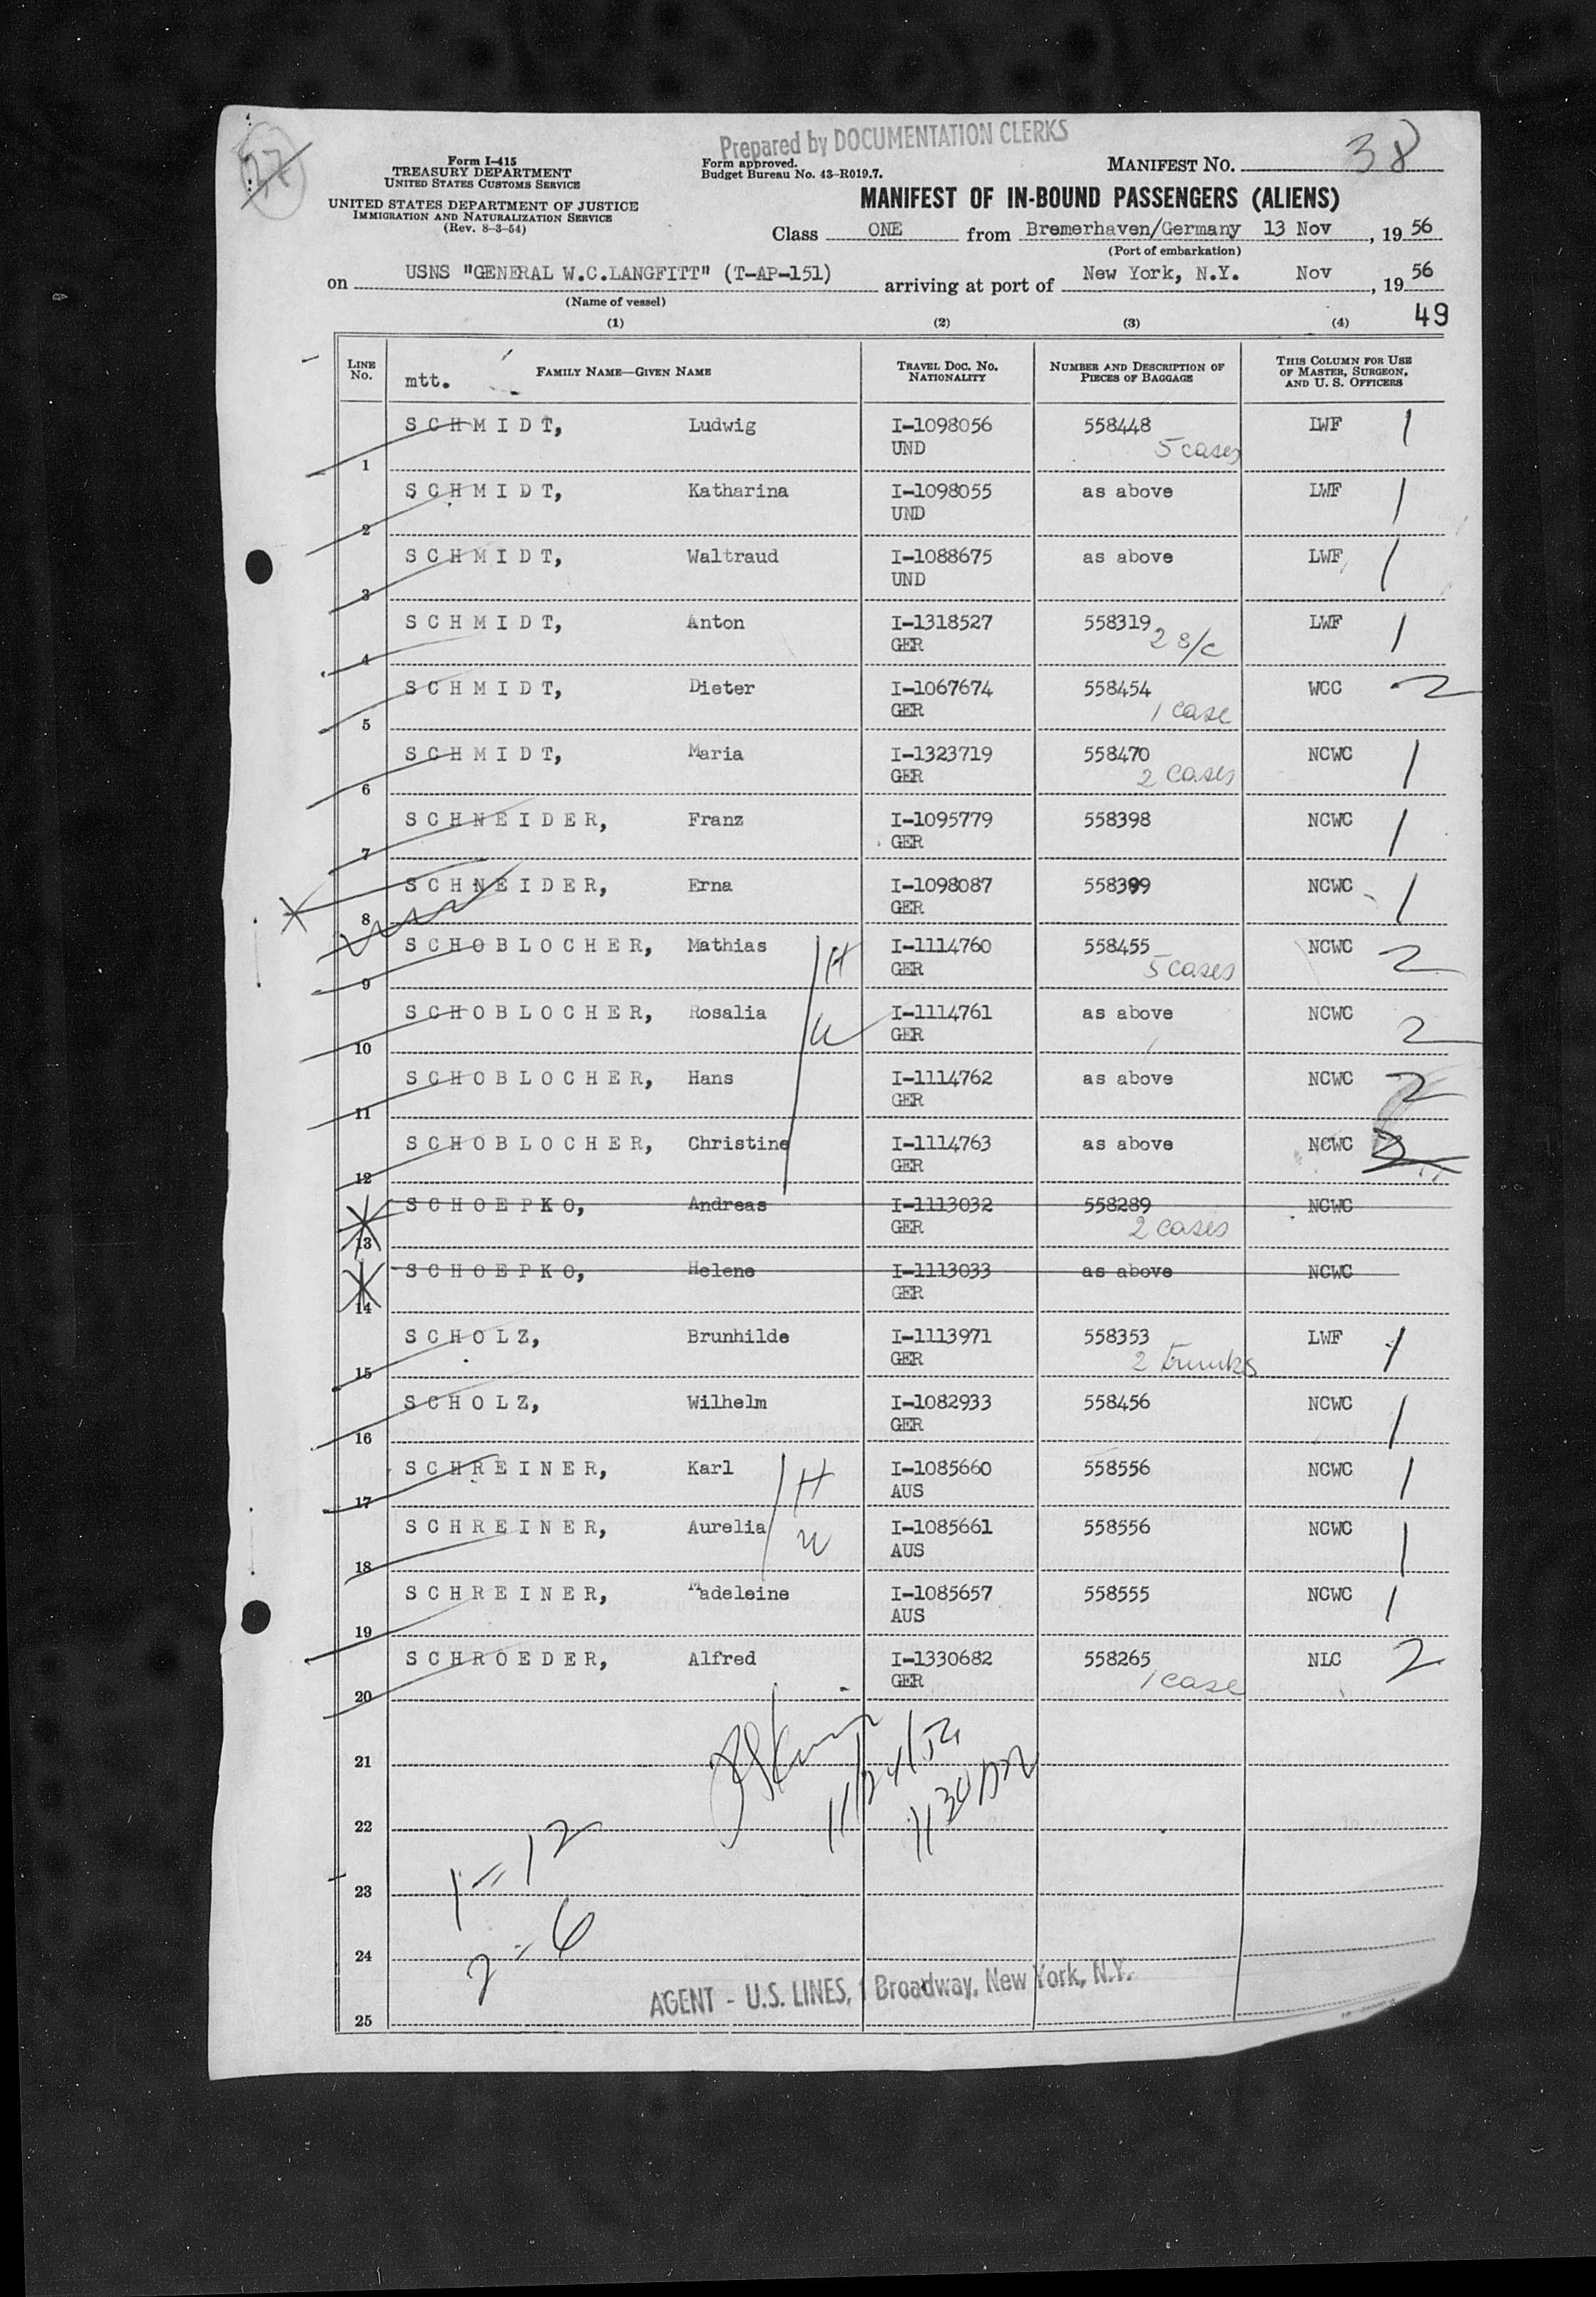 Prepared by DOCUMENTATION CLERKS
Form I-415
TREASURY DEPARTMENT
UNITED STATES CUSTOMS SERVICE
UNITED STATES DEPARTMENT OF JUSTICE
IMMIGRATION AND NATURALIZATION SERVICE
(Rev. 8-3-54)
Form approved.
Budget Bureau No. 43-R019.7.
MANIFEST NO. 38
MANIFEST OF IN-BOUND PASSENGERS (ALIENS)
Class ONE from Bremerhaven/Germany 13 Nov, 19 56
(Port of embarkation)
on USNS "GENERAL W.C.LANGFITT" (T-AP-151) arriving at port of New York, N.Y. Nov, 19 56
(Name of vessel)
(1) (2) (3) (4) 49
LINE NO. mtt. FAMILY NAME—GIVEN NAME TRAVEL DOC. NO. NATIONALITY NUMBER AND DESCRIPTION OF PIECES OF BAGGAGE THIS COLUMN FOR USE OF MASTER, SURGEON, AND U. S. OFFICERS
1 SCHMIDT, Ludwig I-1098056 UND 558448 5 cases LWF 1
2 SCHMIDT, Katharina I-1098055 UND as above LWF 1
3 SCHMIDT, Waltraud I-1088675 UND as above LWF 1
4 SCHMIDT, Anton I-1318527 GER 558319 2 s/c LWF 1
5 SCHMIDT, Dieter I-1067674 GER 558454 1 case WCC 2
6 SCHMIDT, Maria I-1323719 GER 558470 2 cases NCWC 1
7 SCHNEIDER, Franz I-1095779 GER 558398 NCWC 1
8 SCHNEIDER, Erna I-1098087 GER 558399 NCWC 1
9 SCHOBLOCHER, Mathias H I-1114760 GER 558455 5 cases NCWC 2
10 SCHOBLOCHER, Rosalia W I-1114761 GER as above NCWC 2
11 SCHOBLOCHER, Hans I-1114762 GER as above NCWC 2
12 SCHOBLOCHER, Christine I-1114763 GER as above NCWC 2
13 SCHOEPKO, Andreas I-1113032 GER 558289 2 cases NCWC
14 SCHOEPKO, Helene I-1113033 GER as above NCWC
15 SCHOLZ, Brunhilde I-1113971 GER 558353 2 trunks LWF 1
16 SCHOLZ, Wilhelm I-1082933 GER 558456 NCWC 1
17 SCHREINER, Karl H I-1085660 AUS 558556 NCWC 1
18 SCHREINER, Aurelia W I-1085661 AUS 558556 NCWC 1
19 SCHREINER, Madeleine I-1085657 AUS 558555 NCWC 1
20 SCHROEDER, Alfred I-1330682 GER 558265 1 case NLC 2
21
22
1 = 12
23
2 = 6
24
AGENT - U.S. LINES, 1 Broadway, New York, N.Y.
25